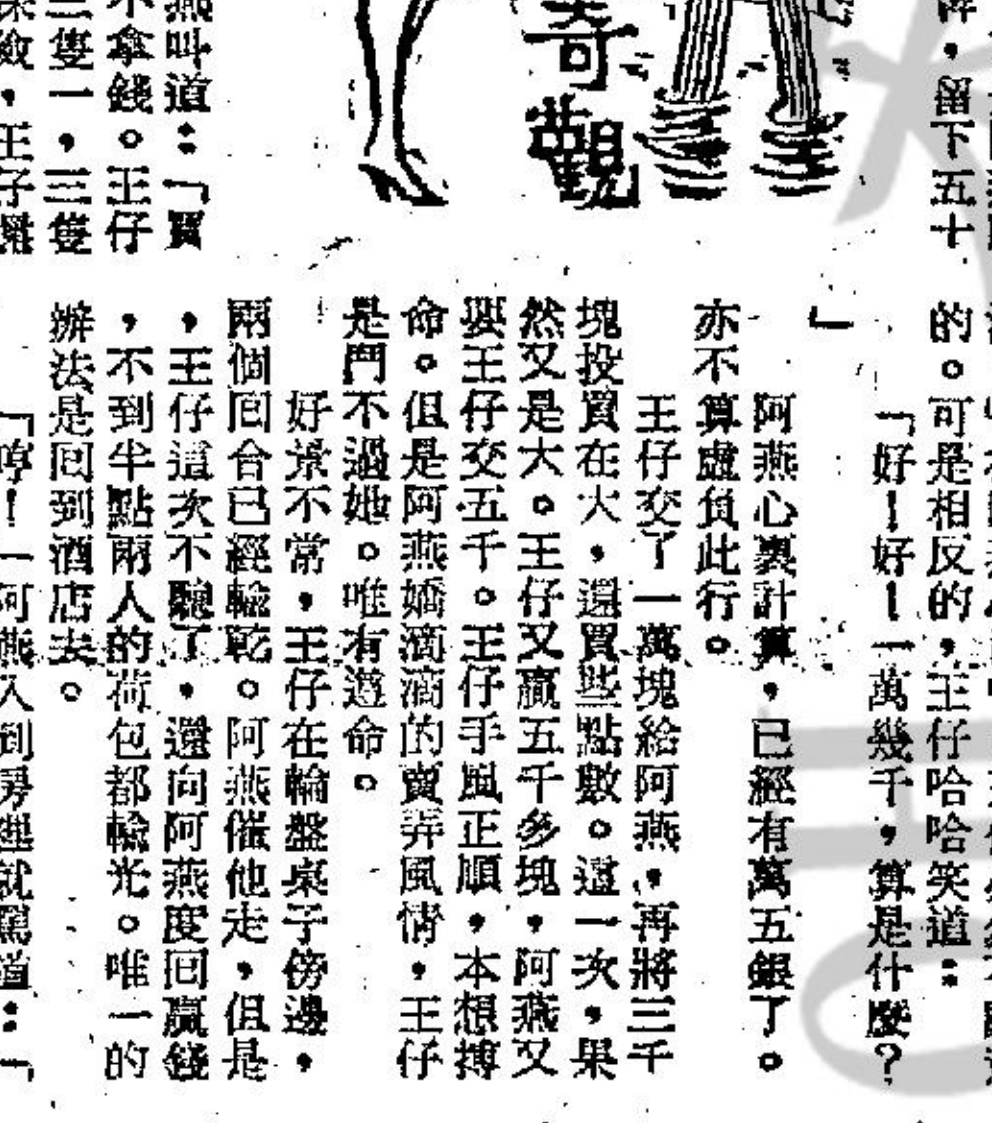 ,留下五十
奇觀
燕叫道:「買
不拿錢。王仔
三隻一,三隻
,王仔
的。可是相反的,王仔哈哈笑道:
「好!好!一萬幾千,算是什麼?
」
阿燕心裏計算,已經有萬五銀了。
亦不算虛負此行。
王仔交了一萬塊給阿燕,再將三千
塊投買在大,還買些點數。這一次,果
然又是大。王仔又贏五千多塊,阿燕又
要王仔交五千。王仔手風正順,本想搏
命。但是阿燕嬌滴滴的賣弄風情,王仔
是鬥不過她。唯有遵命。
好景不常,王仔在輪盤桌子傍邊,
兩個回合已經輸乾。阿燕催他走,但是
,王仔這次不聽了,還向阿燕度回贏錢
,不到半點兩人的荷包都輸光。唯一的
辦法是回到酒店去。
「哼!」阿燕入到房裡就罵道:「